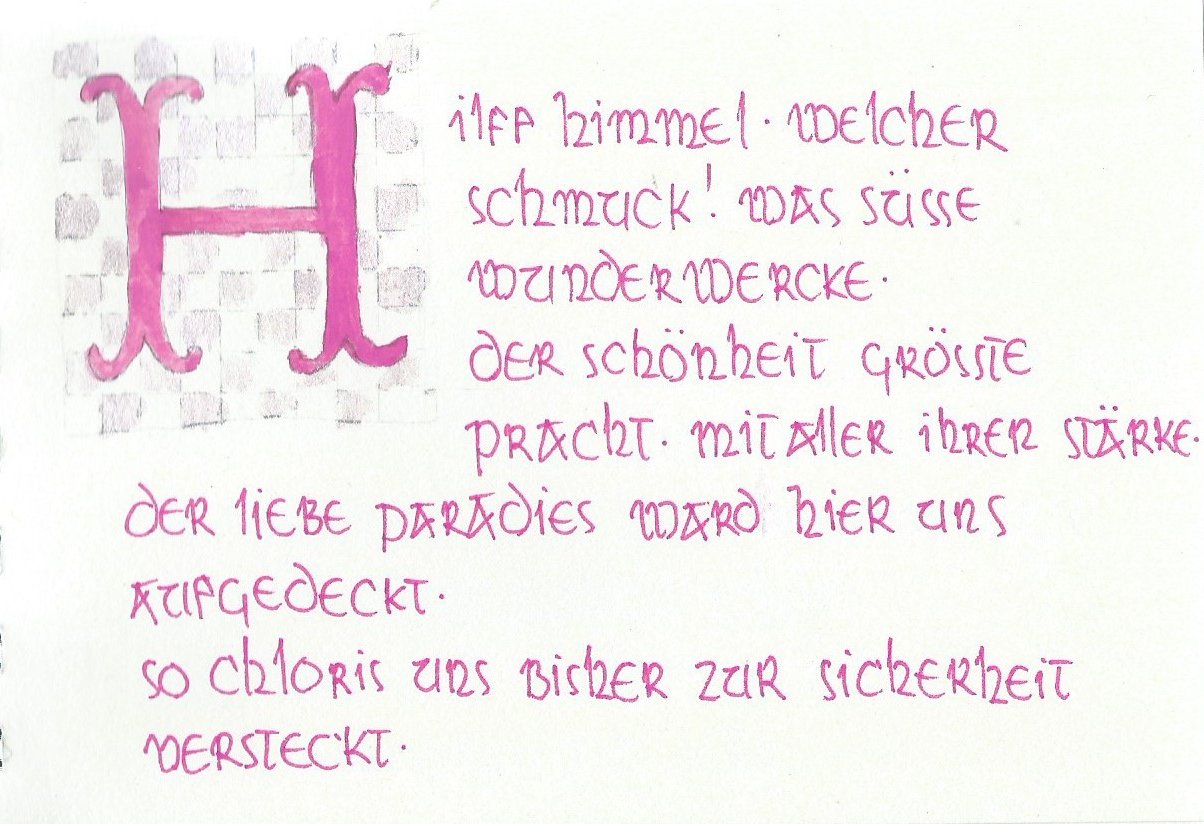 Hilff himmel · welcher
schmuck! was süsse
wunderwercke ·
der schönheit grösste
pracht · mit aller ihrer stärke ·
der liebe paradies ward hier uns
aufgedeckt ·
so chloris uns bisher zur sicherheit
versteckt ·